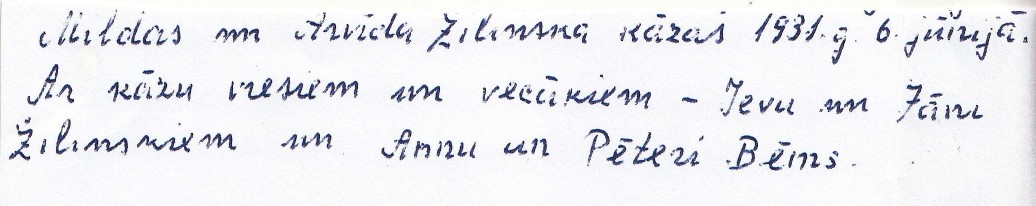 Mildas un Arvīda Žilinska kāzas 1931. g. 6. jūnijā.
Ar kāzu viesiem un vecākiem – Ievu un Jāni
Žilinskiem un Annu un Pēteri Bēms.